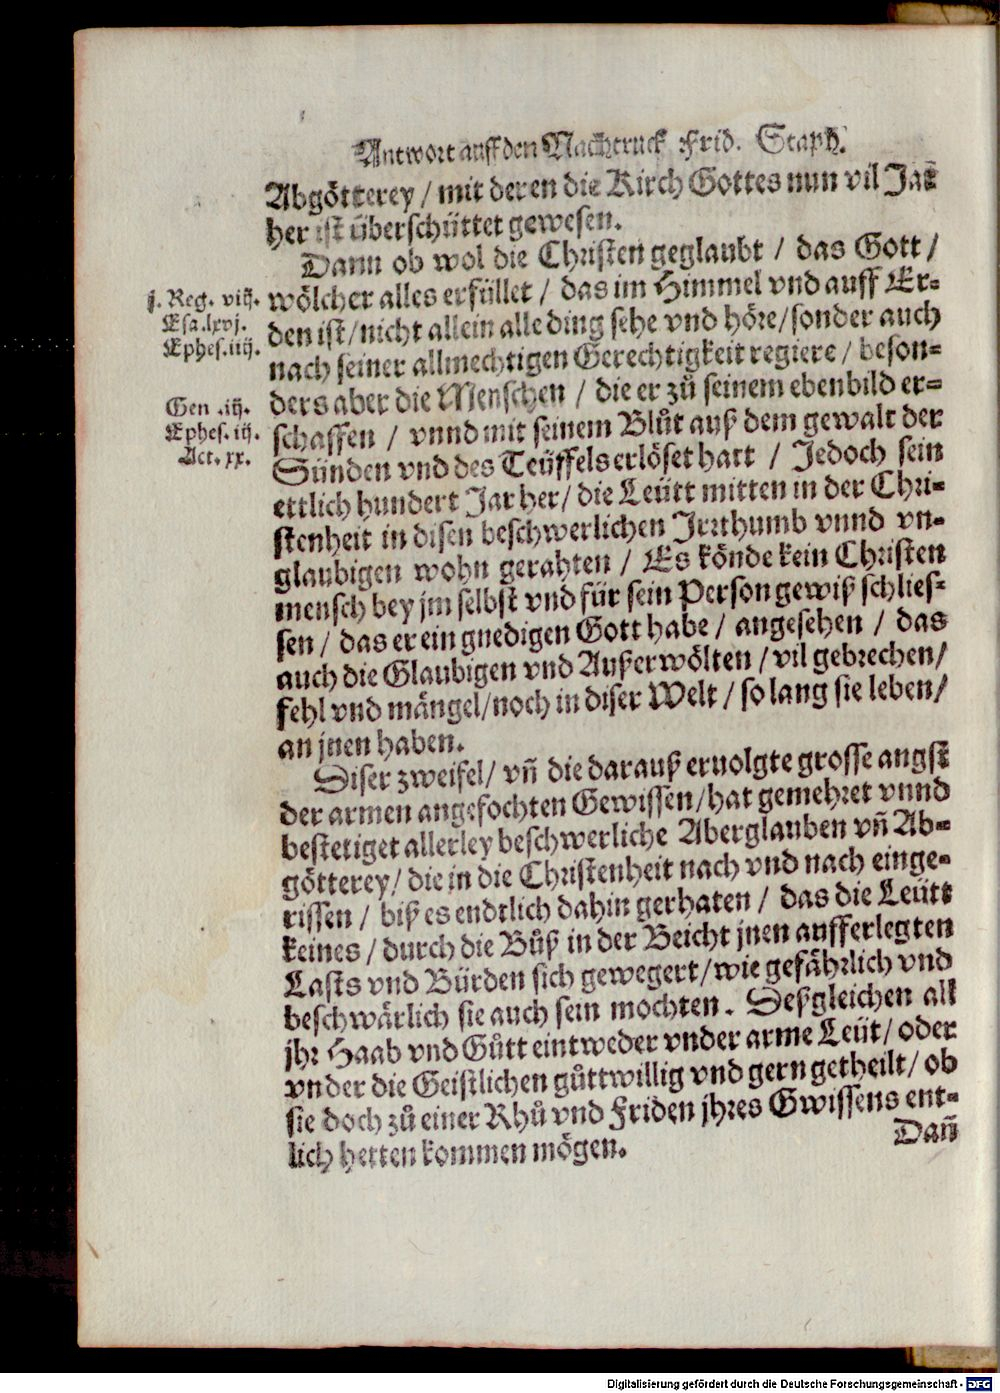 Antwort auff den Nachtruck Frid. Staph.
Abgötterey / mit deren die Kirch Gottes nun vil Jar
her ist überschüttet gewesen.
Dann ob wol die Christen geglaubt / das Gott /
j. Reg. viij. wölcher alles erfüllet / das im Himmel vnd auff Er-
Esa. lxvj. den ist / nicht allein alle ding sehe vnd höre / sonder auch
Ephes. iiij. nach seiner allmechtigen Gerechtigkeit regiere / beson-
Gen .iij. ders aber die Menschen / die er zů seinem ebenbild er-
Ephes. iij. schaffen / vnnd mit seinem Blůt auß dem gewalt der
Act. xx. Sünden vnd des Teüffels erlöset hatt / Jedoch sein
ettlich hundert Jar her / die Leütt mitten in der Chri-
stenheit in disen beschwerlichen Jrrthumb vnnd vn-
glaubigen wohn gerahten / Es könde kein Christen
mensch bey jm selbst vnd für sein Person gewiß schlies-
sen / das er ein gnedigen Gott habe / angesehen / das
auch die Glaubigen vnd Außerwölten / vil gebrechen /
fehl vnd mängel / noch in diser Welt / so lang sie leben /
an jnen haben.
Diser zweifel / vñ die darauß eruolgte grosse angst
der armen angefochten Gewissen / hat gemehret vnnd
bestetiget allerley beschwerliche Aberglauben vñ Ab-
götterey / die in die Christenheit nach vnd nach einge-
rissen / biß es endtlich dahin gerhaten / das die Leütt
keines / durch die Bůß in der Beicht jnen aufferlegten
Lasts vnd Bürden sich gewegert / wie gefährlich vnd
beschwärlich sie auch sein mochten. Deßgleichen all
jhr Haab vnd Gůtt eintweder vnder arme Leüt / oder
vnder die Geistlichen gůttwillig vnd gern getheilt / ob
sie doch zů einer Rhů vnd Friden jhres Gwissens ent-
lich hetten kommen mögen.
Dañ
Digitalisierung gefördert durch die Deutsche Forschungsgemeinschaft - DFG